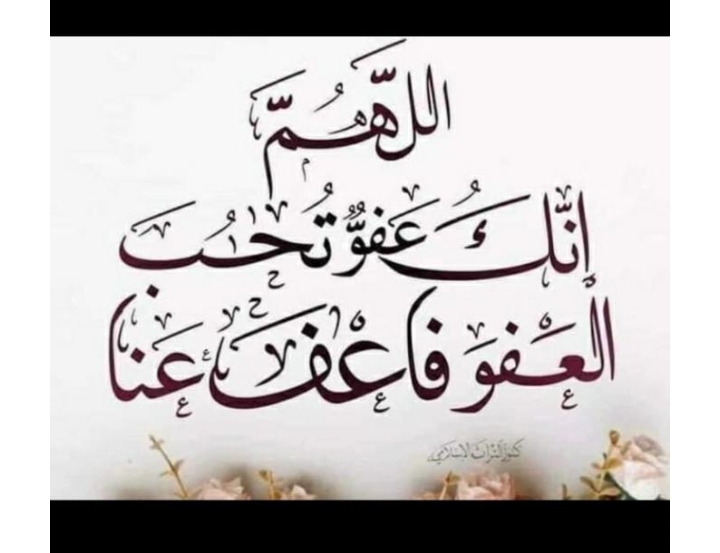 اللَّهُمَّ
إنَّكَ عَفوٌّ تُحبُ
الْعَفوَ فاعْفُ عَنا
كنوز التراث الإسلامي